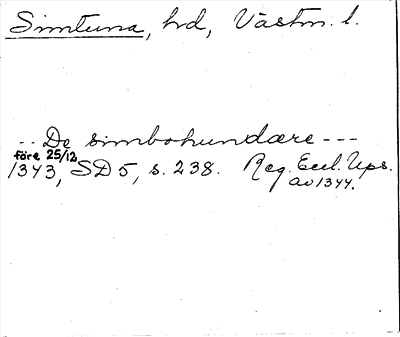 Simtuna, hd, Västm. l.
-- De simbohundære ---
före 25/12
1343, SD 5, s. 238. Reg. Eccl. Ups.
av 1344.